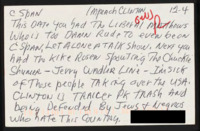 C SPAN IMPEACH CLINTON 12-4
THIS DATE YOU HAD THE LIBERAL MATTHEWS
WHO IS TOO DAMN RUDE TO EVER BE ON
C SPAN, LET ALONE A TALK SHOW. NEXT YOU
HAD THE KIKE ROSEN SPOUTING THE CHUCKIE
SHUMER - JERRY LINE - I'M SICK
OF THESE PEOPLE TAKING OVER THE USA.
CLINTON IS TRAILER PK TRASH AND
BEING DEFENDED BY JEWS & NEGROES
WHO HATE THIS COUNTRY.